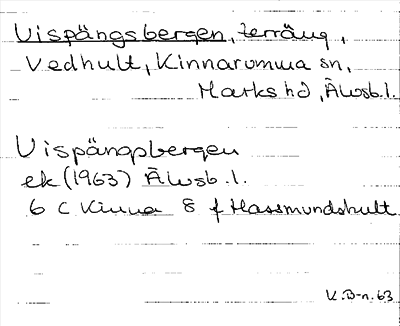 Vispängsbergen, terräng,
Vedhult, Kinnarumma sn,
Marks hd, Älvsb. l.
Vispängsbergen
ek (1963) Älvsb. l.
6 C Kinna 8 f Hassmundshult
V.B-n. 63